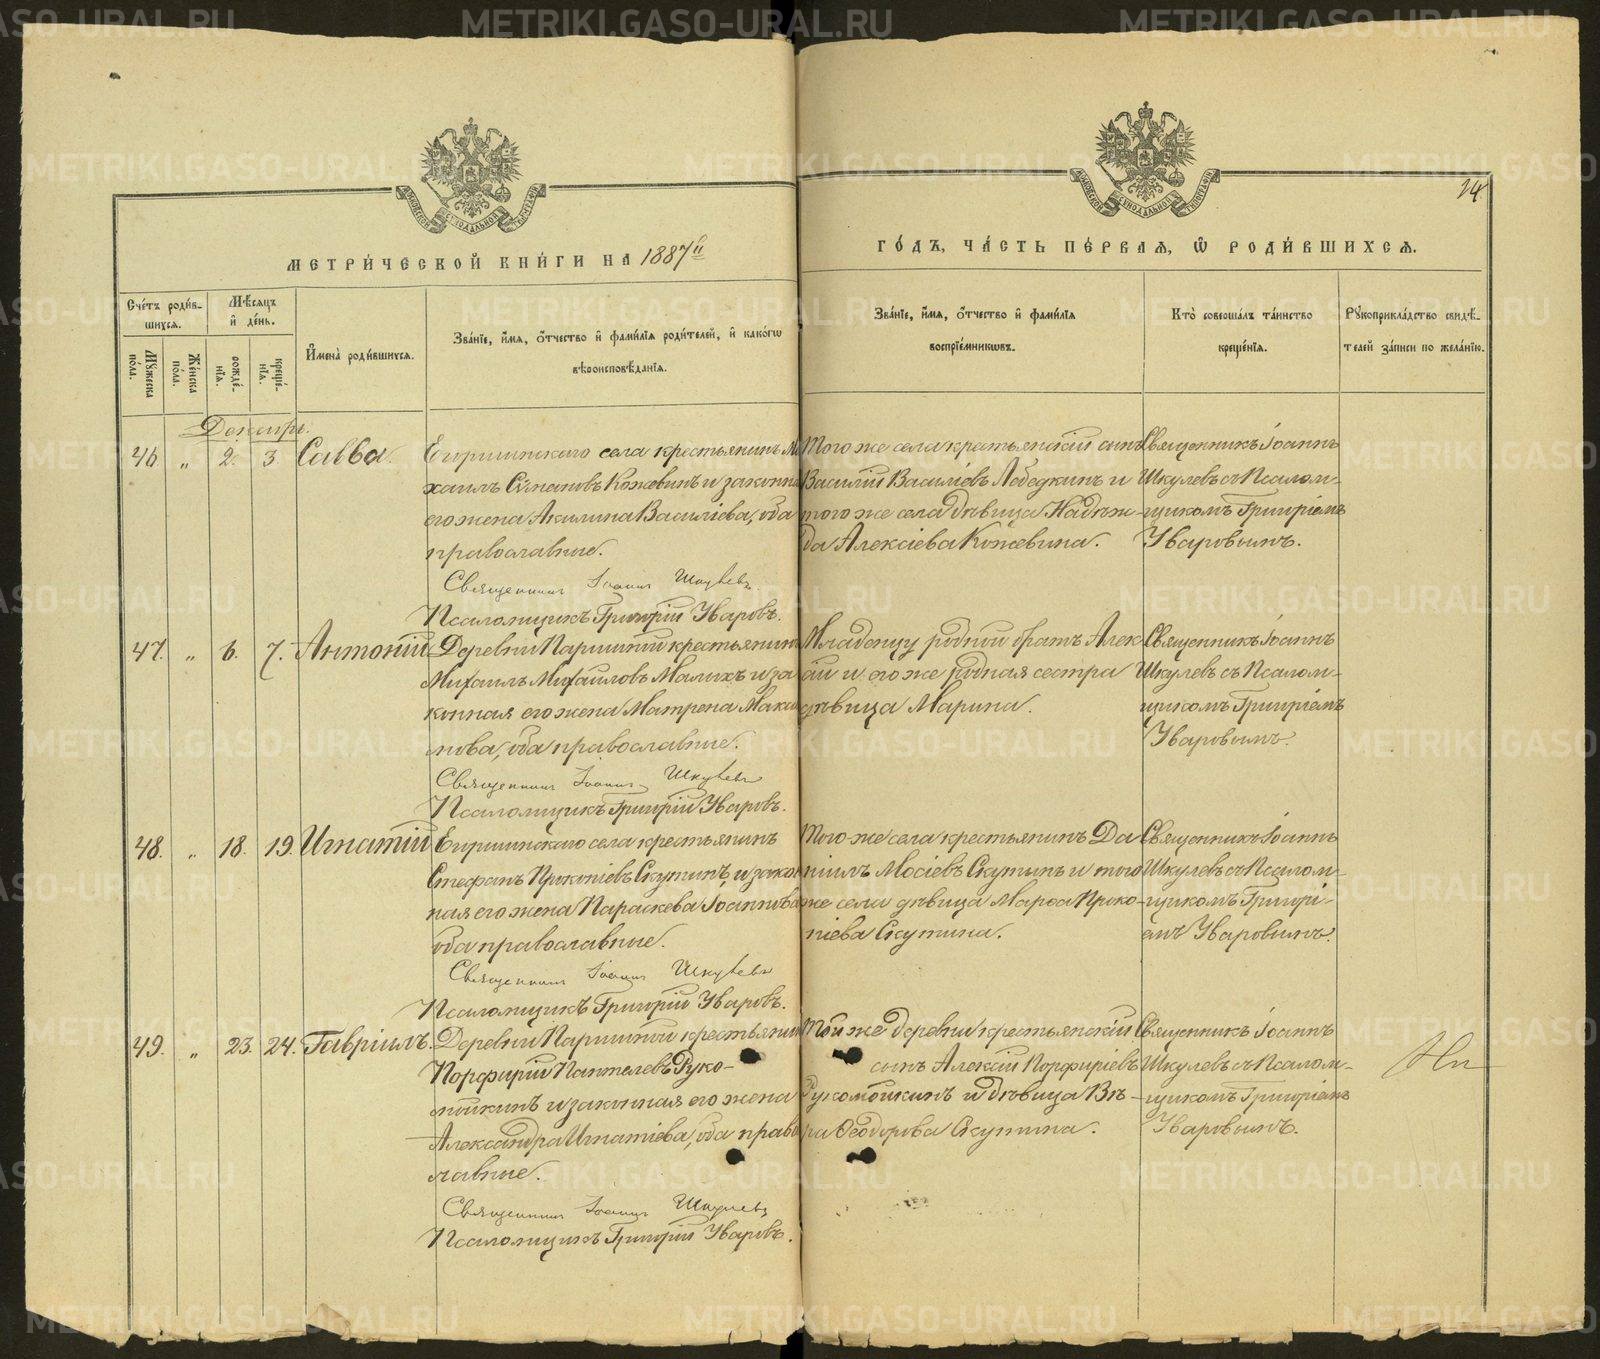 24.
МЕТРИ́ЧЕСКОЙ КНИ́ГИ НА 1887й
ГО́ДЪ, ЧА́СТЬ ПЕ́РВАЯ, Ѽ РОДИ́ВШИХСЯ.
Сче́тъ роди́в-
шихся.
Мѣ́сяцъ
и҆ де́нь.
Му́жеска
по́ла.
Же́нска
по́ла.
рожде́-
нїя.
креще́-
нїя.
И҆мена̀ роди́вшихся.
Зва́нїе, и҆́мя, ѻ҆́тчество и҆ фами́лїя роди́телей, и҆ како́гѡ
вѣроисповѣ́данїя.
Зва́нїе, и҆́мя, ѻ҆́тчество и҆ фами́лїя
воспрїе́мникѡвъ.
Кто̀ соверша́лъ та́инство
креще́нїя.
Рꙋкоприкла́дство свидѣ́-
телей за́писи по жела́нїю.
Декабрь.
46 „ 2. 3. Савва.
села крестьянинъ Ми
хаилъ Симановъ Кожевинъ и законна
его жена Акилина Васильева, оба
православные.
Священникъ Іоаннъ Шкулевъ
Псаломщикъ Григорій Уваровъ.
Того же села крестьянскій сынъ
Василій Василіевъ Лебедкинъ и
того же села дѣвица Надеж-
да Алексіева Кожевина.
Священникъ Іоаннъ
Шкулевъ съ Псалом-
щикомъ Григоріемъ
Уваровымъ.
47. „ 6. 7. Антоній
Деревни Паршиной крестьянинъ
Михаилъ Михайловъ Малыхъ и за
конная его жена Матрена Макси
мова, оба православные.
Священникъ Іоаннъ Шкулевъ
Псаломщикъ Григорій Уваровъ.
Младенцу родной братъ Алек
ѣй и его же родная сестра
дѣвица Марина.
Священникъ Іоаннъ
Шкулевъ съ Псалом-
щикомъ Григоріемъ
Уваровымъ.
48. „ 18. 19. Игнатій
села крестьянинъ
Стефанъ Прокопіевъ Скутинъ и закон
ная его жена Параскева Іоаннова
оба православные.
Священникъ Іоаннъ Шкулевъ
Псаломщикъ Григорій Уваровъ.
Того же села крестьянинъ Да
ніилъ Мосіевъ Скутинъ и того
же села дѣвица Марѳа Проко-
піева Скутина.
Священникъ Іоаннъ
Шкулевъ съ Псалом-
щикомъ Григорі-
емъ Уваровымъ.
49. „ 23. 24. Гавріилъ.
Деревни Паршиной крестьянинъ
Порфирій Пантелеевъ Руко-
мойкинъ и законная его жена
Александра Игнатіева, оба право
славные.
Священникъ Іоаннъ Шкулевъ
Псаломщикъ Григорій Уваровъ.
Той же деревни крестьянскій
сынъ Алексій Порфиріевъ
Рукомойкинъ и дѣвица Вѣ-
ра Ѳеодорова Скутина.
Священникъ Іоаннъ
Шкулевъ съ Псалом-
щикомъ Григоріемъ
Уваровымъ.
METRIKI.GASO-URAL.RU